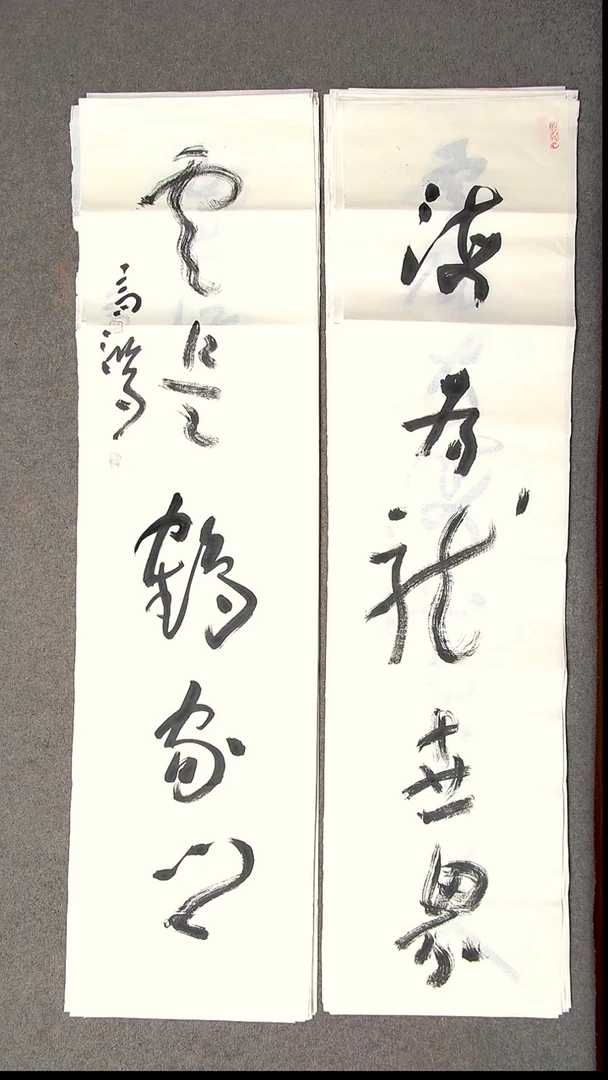 海為龍世界
雲是鶴家鄉
高鴻